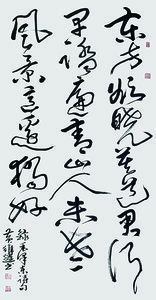 东方欲晓莫道君行
早踏遍青山人未老
风景这边独好
录毛泽东词句